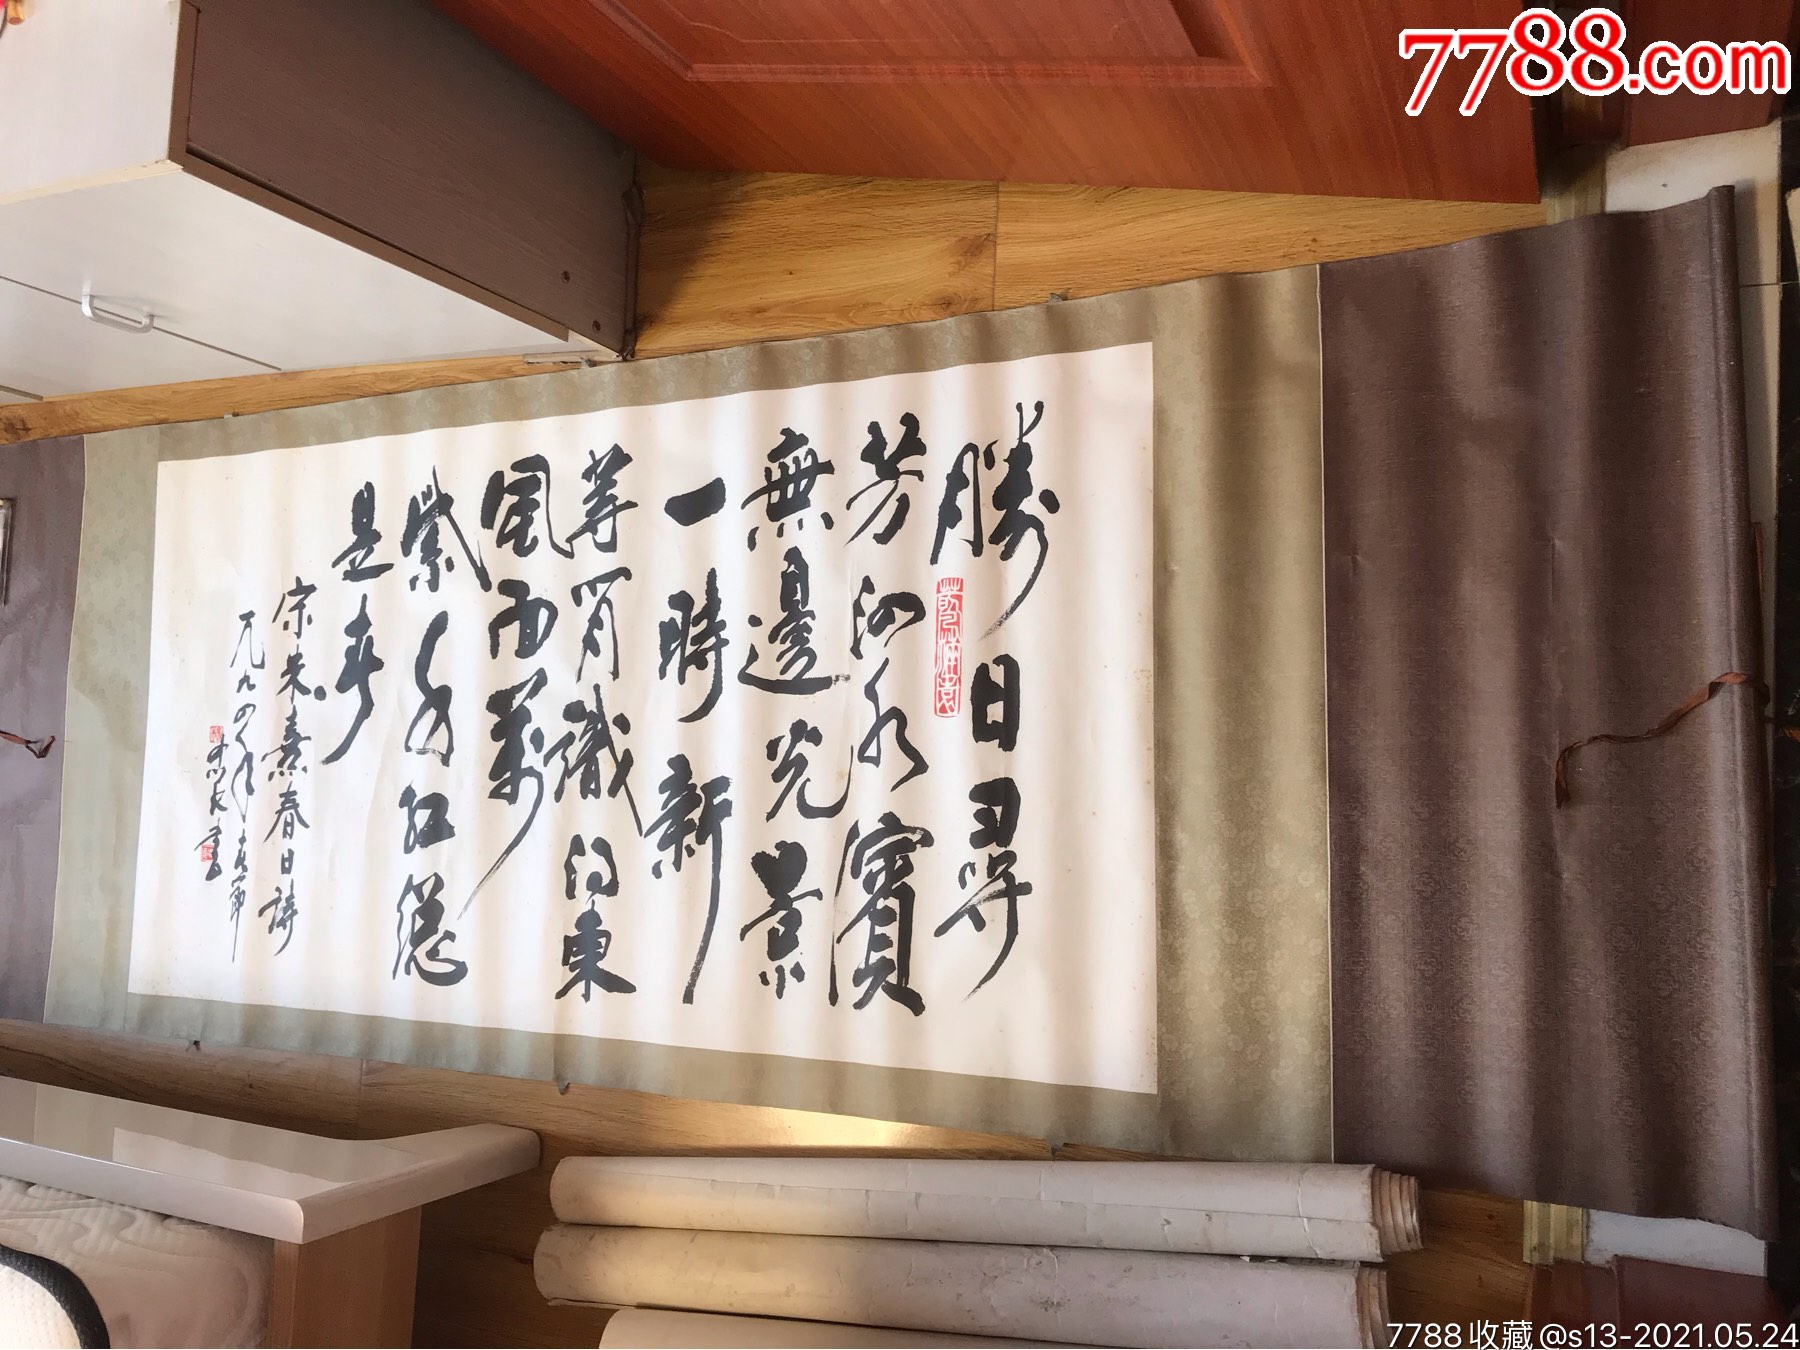 7788.com
勝日尋
芳泗水濱
無邊光景
一時新
等閒識得東
風面萬
紫千紅總
是春
宋朱熹春日詩
一九九四年春節
書
7788收藏@s13-2021.05.24